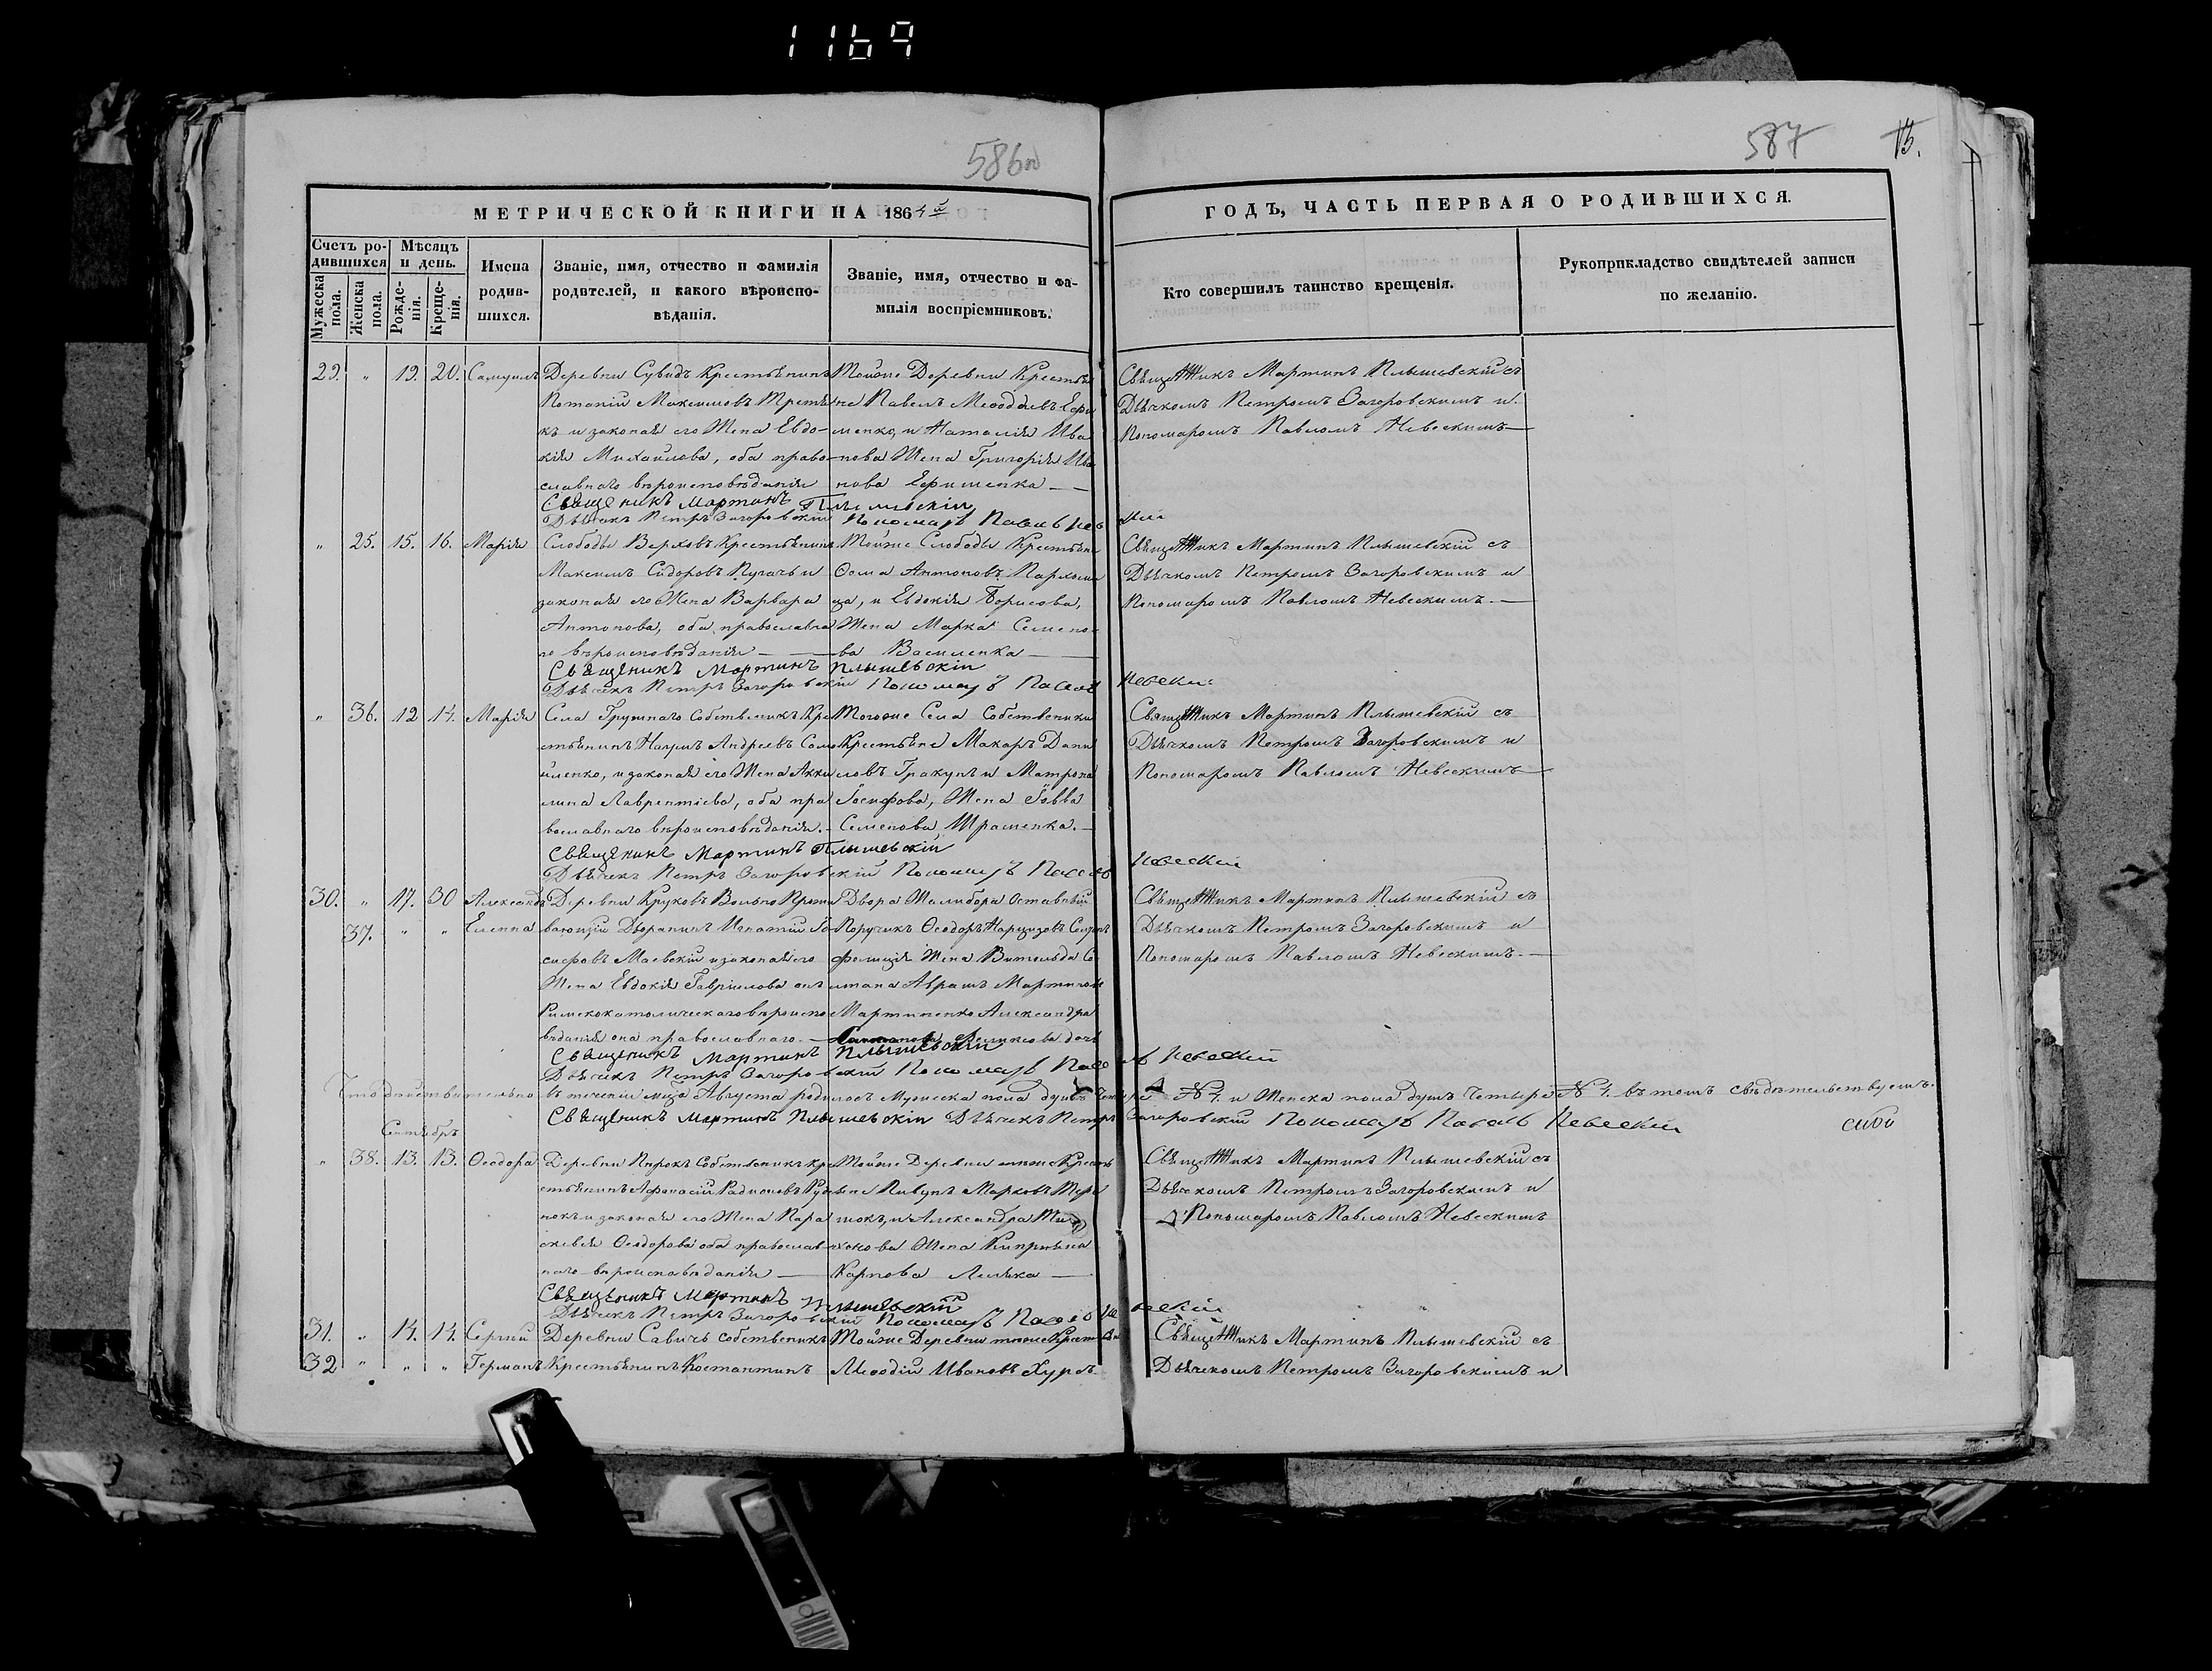 1169
586об
587
МЕТРИЧЕСКОЙ КНИГИ НА 1864й
ГОДЪ, ЧАСТЬ ПЕРВАЯ О РОДИВШИХСЯ.
Счетъ родившихся
Мужеска пола.
Женска пола.
Мѣсяцъ и день.
Рожденія.
Крещенія.
Имена родившихся.
Званіе, имя, отчество и фамилія родителей, и какого вѣроисповѣданія.
Званіе, имя, отчество и фамилія воспріемниковъ.
Кто совершилъ таинство крещенія.
Рукоприкладство свидѣтелей записи по желанію.
29. " 19. 20. Самуилъ
Деревни Сувидъ Крестьянинъ
Потапій Максимовъ Третя
къ и законая его Жена Евдо-
кія Михайлова, оба право-
славнаго вѣроисповѣданія
Тойже Деревни Крестья
не Павелъ Меѳодіевъ Ефи
менко, и Наталія Ива
нова Жена Григорія Ива
нова Ефименка
Священикъ Мартинъ Плышевскій съ
Дьячкомъ Петромъ Загоровскимъ и
Пономаромъ Павломъ Невескимъ
Священикъ Мартинъ Плышевскій
Дьячекъ Петръ Загоровскій Пономаръ Павелъ Невескій
" 25. 15. 16. Марія
Слободы Верховъ Крестьянинъ
Максимъ Сидоровъ Пугачъ и
законая его Жена Варвара
Антонова, оба православна
го вѣроисповѣданія
Тойже Слободы Крестьяне
Ѳома Антоновъ Пархоме
ца, и Евдокія Борисова,
Жена Марка Семено
ва Василенка
Священикъ Мартинъ Плышевскій съ
Дьячкомъ Петромъ Загоровскимъ и
Пономаромъ Павломъ Невескимъ
Священикъ Мартинъ Плышевскій
Дьячекъ Петръ Загоровскій Пономаръ Павелъ Невескій
" 36. 12 14. Марія
Села Грушнаго Собственикъ Кре
стьянинъ Наумъ Андреевъ Само
йленко, и законая его Жена Аки
лина Лаврентіева, оба пра
вославнаго вѣроисповѣданія.
Тогоже Села Собственики
Крестьяне Макаръ Дани
ловъ Гракунъ и Матрона
Іосифова, Жена Іовва
Семенова Трашенка.
Священикъ Мартинъ Плышевскій съ
Дьячкомъ Петромъ Загоровскимъ и
Пономаромъ Павломъ Невескимъ
Священикъ Мартинъ Плышевскій
Дьячекъ Петръ Загоровскій Пономаръ Павелъ Невескій
30. " 17. 30 Александръ
37. " " Елена
Деревни Круковъ Вольно Прожи
вающій Дворанинъ Игнатій Іо
сифовъ Маевскій и законая его
Жена Евдокія Гавріилова онъ
Римскокатолическаго вѣроиспо
вѣданія она православнаго.
Двора Жалибора Отставній
Поручикъ Ѳеодоръ Нарцизовъ
фелиція Жена Витольда
Абрамъ Мартинов
Мартиненко Александра
Священикъ Мартинъ Плышевскій съ
Дьячкомъ Петромъ Загоровскимъ и
Пономаромъ Павломъ Невескимъ.
Священикъ Мартинъ Плышевскій
Дьячекъ Петръ Загоровскій Пономаръ Павелъ Невескій
Что действительно въ теченіи мца Августа родилось Мужеска пола душъ Четыре № 4. и Женска пола душъ Четыре № 4. въ томъ свѣдѣтельствуемъ.
Священикъ Мартинъ Плышевскій Дьячекъ Петръ Загоровскій Пономаръ Павелъ Невескій
Сентябрь
" 38. 13. 13. Ѳеодора
Деревни Пирокъ Собственикъ Кре
стьянинъ Афанасій Радионовъ Руд
нокъ и законая его Жена Пара
скевія Ѳеодорова оба православ
наго вѣроисповѣданія
Тойже Деревни Кресть
яне Пивунъ Марковъ Тере
шокъ, и Александра Ти
хонова Жена Кипріяна
Карпова Ляшка
Священикъ Мартинъ Плышевскій съ
Дьячкомъ Петромъ Загоровскимъ и
Пономаромъ Павломъ Невескимъ
Священикъ Мартинъ Плышевскій
Дьячекъ Петръ Загоровскій Пономаръ Павелъ Невескій
31. " 14. 14. Сергій
32 " " " Германъ
Деревни Савичъ собственикъ
Крестьянинъ Костантинъ
Тойже Деревни тоже Крестьяне
Меѳодій Ивановъ Хуров
Священикъ Мартинъ Плышевскій съ
Дьячкомъ Петромъ Загоровскимъ и